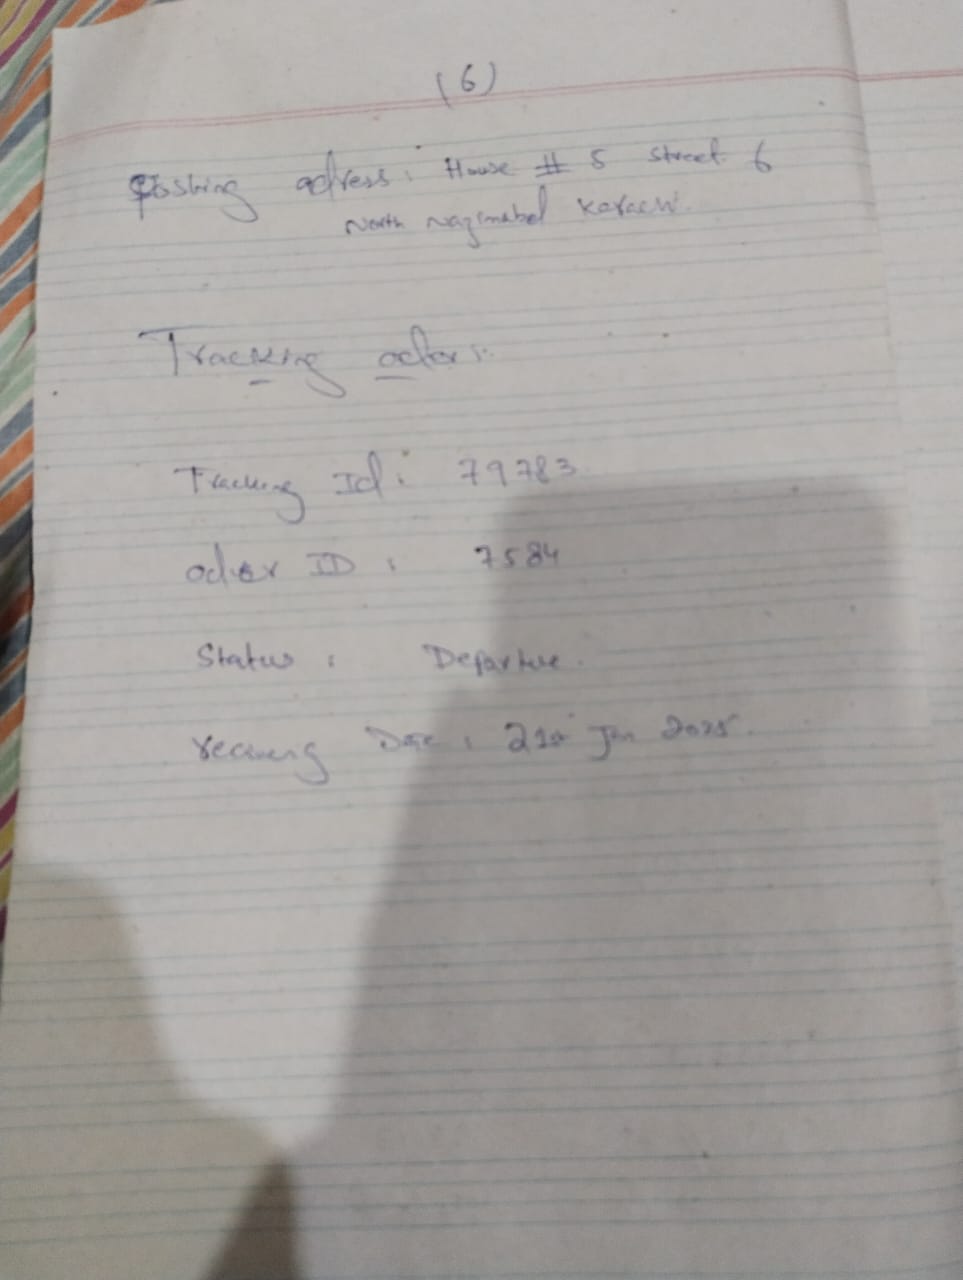 (6)
Posting adress: House # 5 Street 6
North Nazimabd Karachi.
Tracking oder:
Tracking Id: 79783
oder ID : 7584
Status : Departure.
Date : 21st Jan 2025.